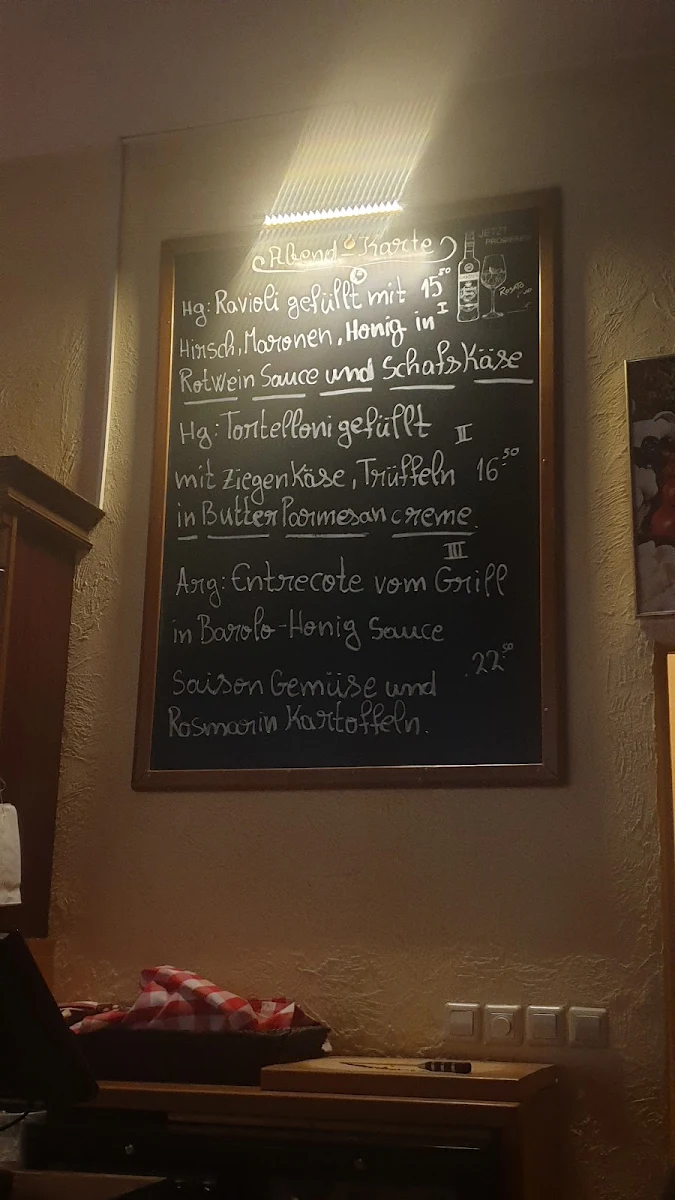 Abend-Karte
JETZT
PROBIEREN
Hg: Ravioli gefüllt mit 15⁵⁰
Hirsch, Maronen, Honig in I
Rotwein Sauce und Schafskäse
Hg: Tortelloni gefüllt II
mit Ziegenkäse, Trüffeln 16⁵⁰
in Butter Parmesan creme
III
Arg: Entrecote vom Grill
in Barolo-Honig Sauce
22⁵⁰
Saison Gemüse und
Rosmarin Kartoffeln.